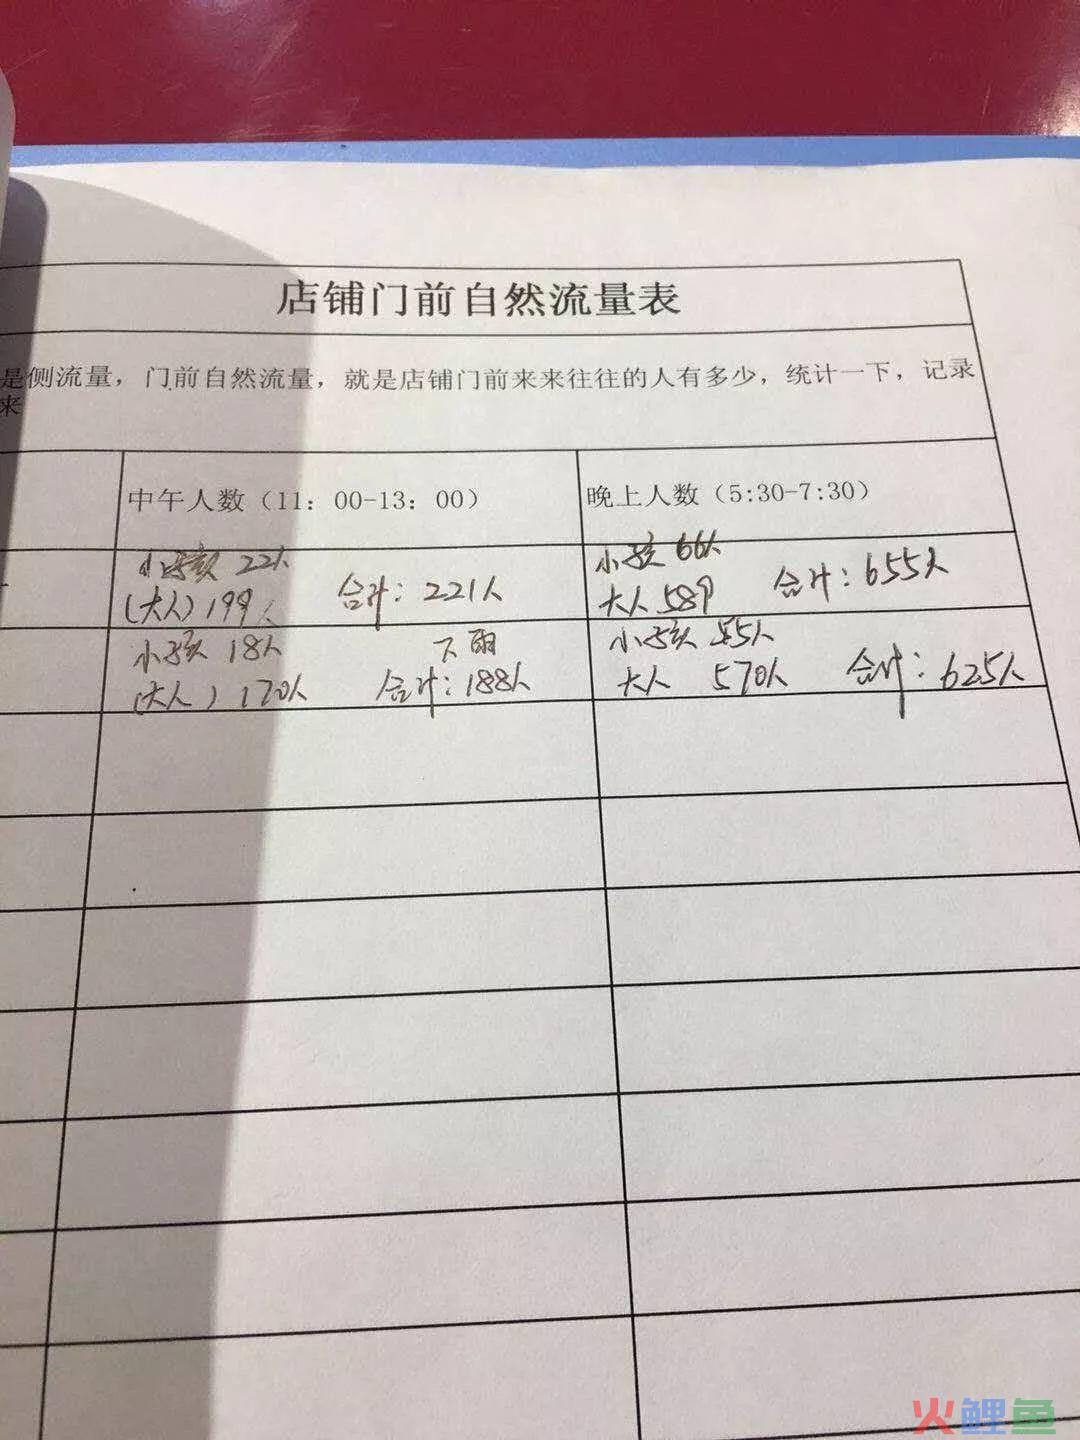 店铺门前自然流量表
是侧流量，门前自然流量，就是店铺门前来来往往的人有多少，统计一下，记录
来
中午人数（11：00-13：00）
晚上人数（5:30-7:30）
小孩 22人
(大人) 199人 合计：221人
小孩 66人
大人 589 合计：655人
小孩 18人 下雨
(大人) 170人 合计：188人
小孩 55人
大人 570人 合计：625人
火鲤鱼